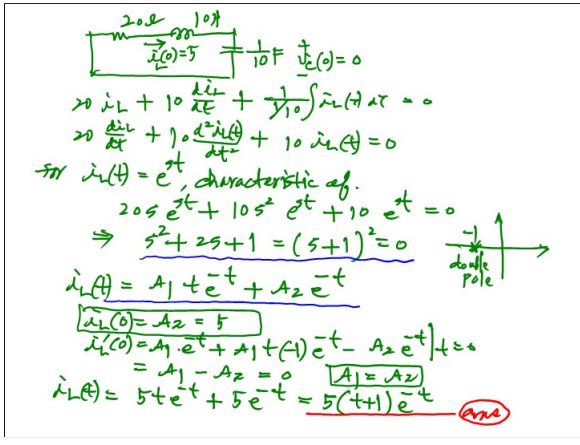 20Ω 10H
i_L(0)=5 1/10 F + v_c(0)=0 -
20 i_L + 10 di_L/dt + 1/(1/10) ∫ i_L(τ) dτ = 0
20 di_L/dt + 10 d²i_L(t)/dt² + 10 i_L(t) = 0
for i_L(t) = e^st, characteristic eq.
20s e^st + 10s² e^st + 10 e^st = 0
⇒ s² + 2s + 1 = (s+1)² = 0
-1
double
pole
i_L(t) = A1 t e^-t + A2 e^-t
i_L(0) = A2 = 5
i_L'(0) = A1 · e^-t + A1 t(-1) e^-t - A2 e^-t | t=0
= A1 - A2 = 0 A1 = A2
i_L(t) = 5t e^-t + 5 e^-t = 5(t+1) e^-t ans